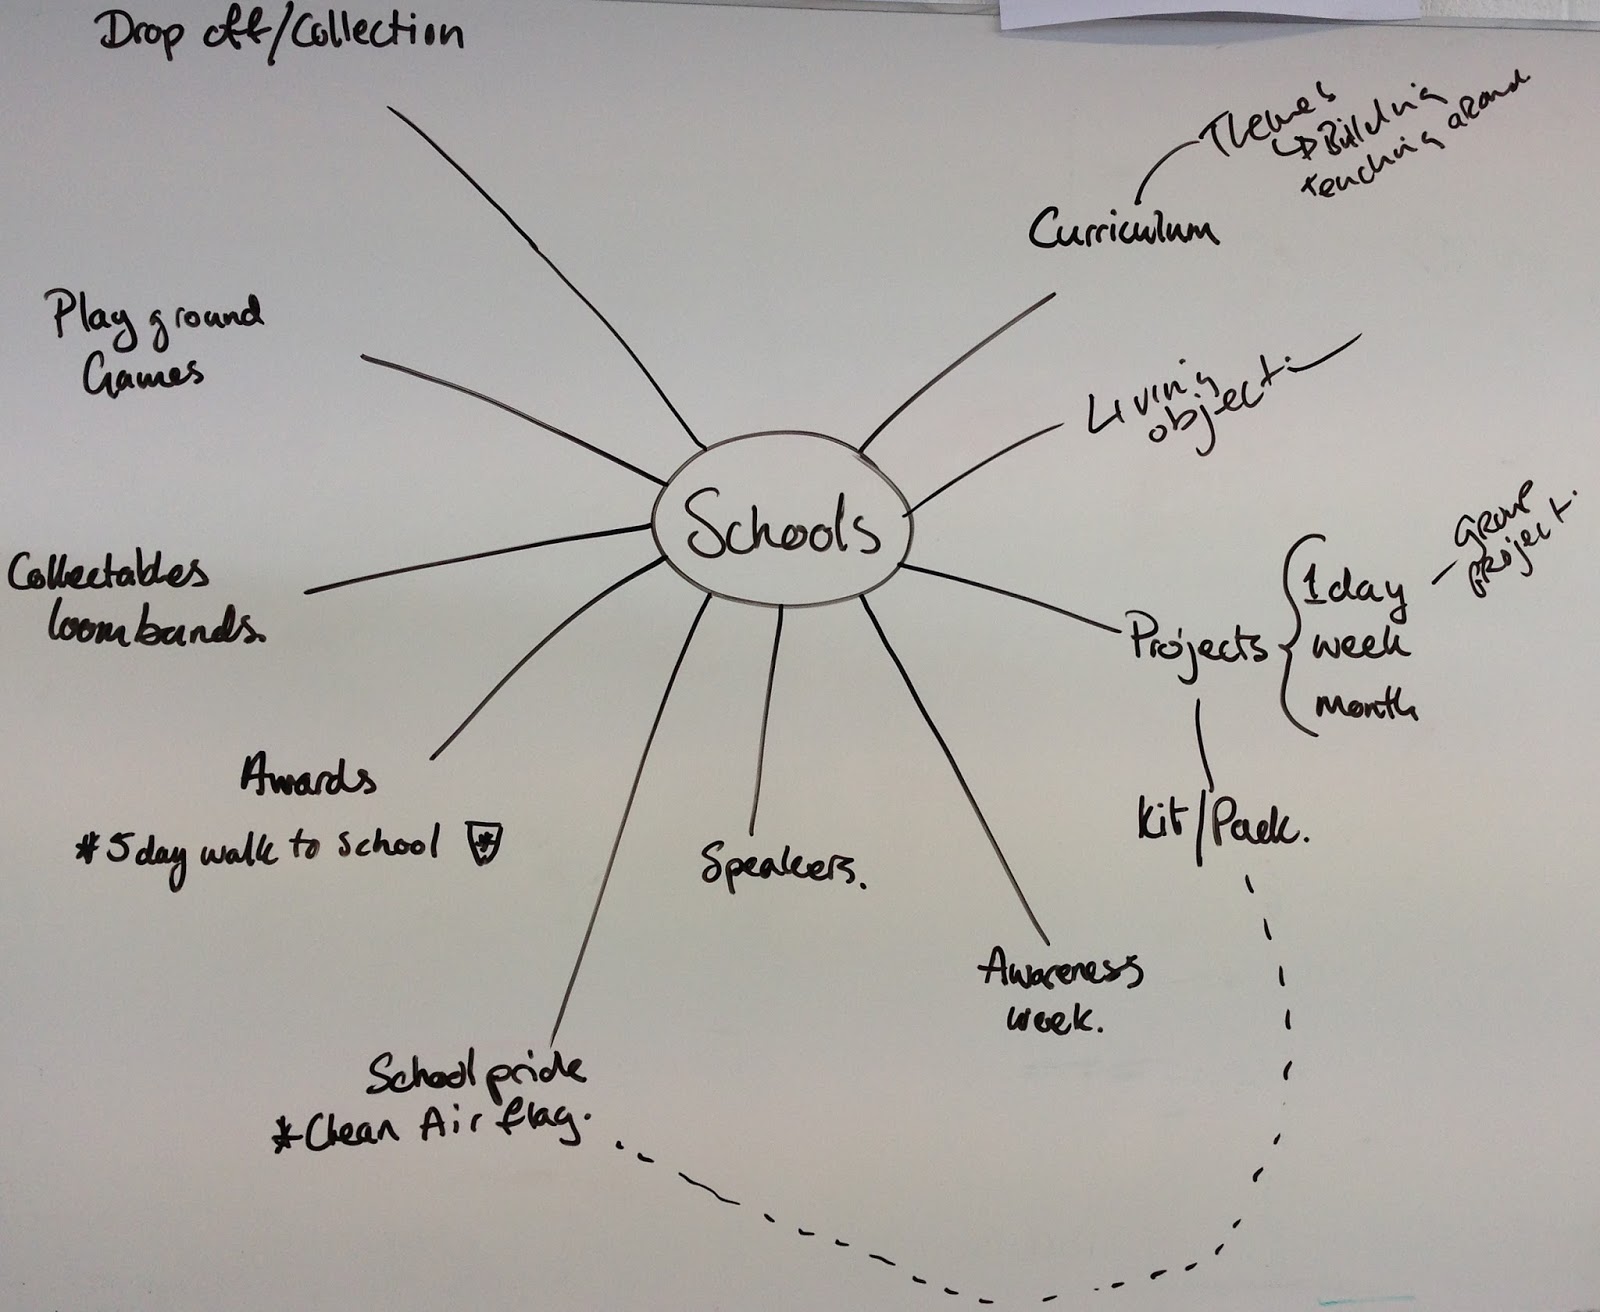 Drop off/Collection
Themes
↳ Building
teaching around
Curriculum
Play ground
Games
Living
object
Schools
Collectables
loom bands.
Projects
1 day
week
month
group
project.
Awards
*5 day walk to school
Kit/Pack.
Speakers.
Awareness
week.
School pride
*Clean Air flag.